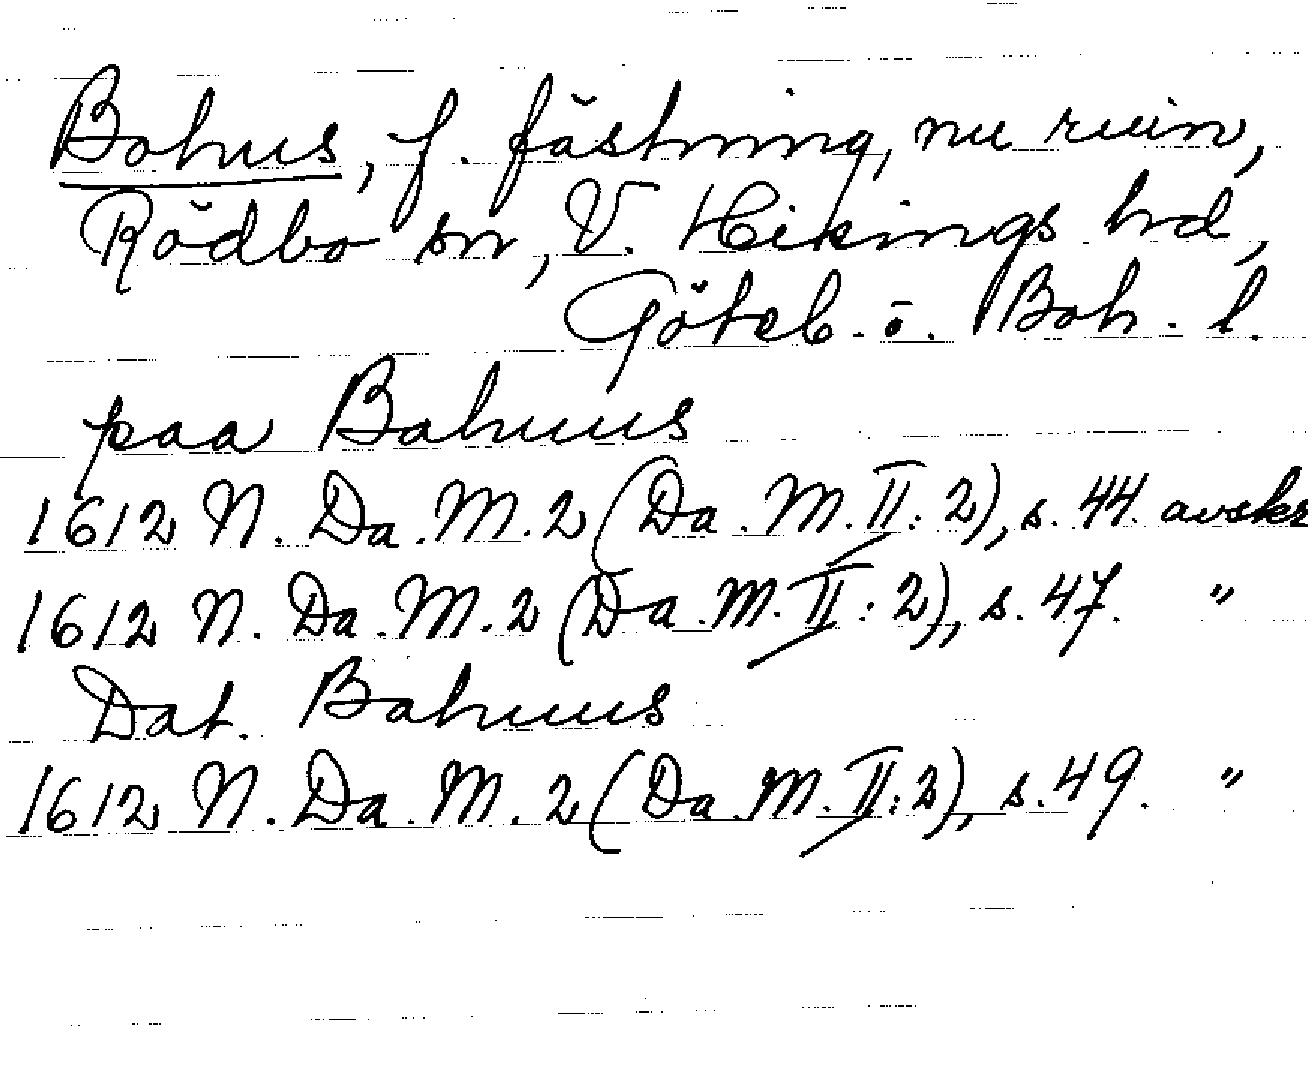 Bohus, f. fästning, nu ruin,
Rödbo sn, V. Hisings hd,
Göteb. o. Boh. l.
paa Bahuus
1612 N. Da. M. 2 (Da. M. II: 2), s. 44. avskr
1612 N. Da. M. 2 (Da. M. II: 2), s. 47. "
Dat. Bahuus
1612 N. Da. M. 2 (Da. M. II: 2), s. 49. "